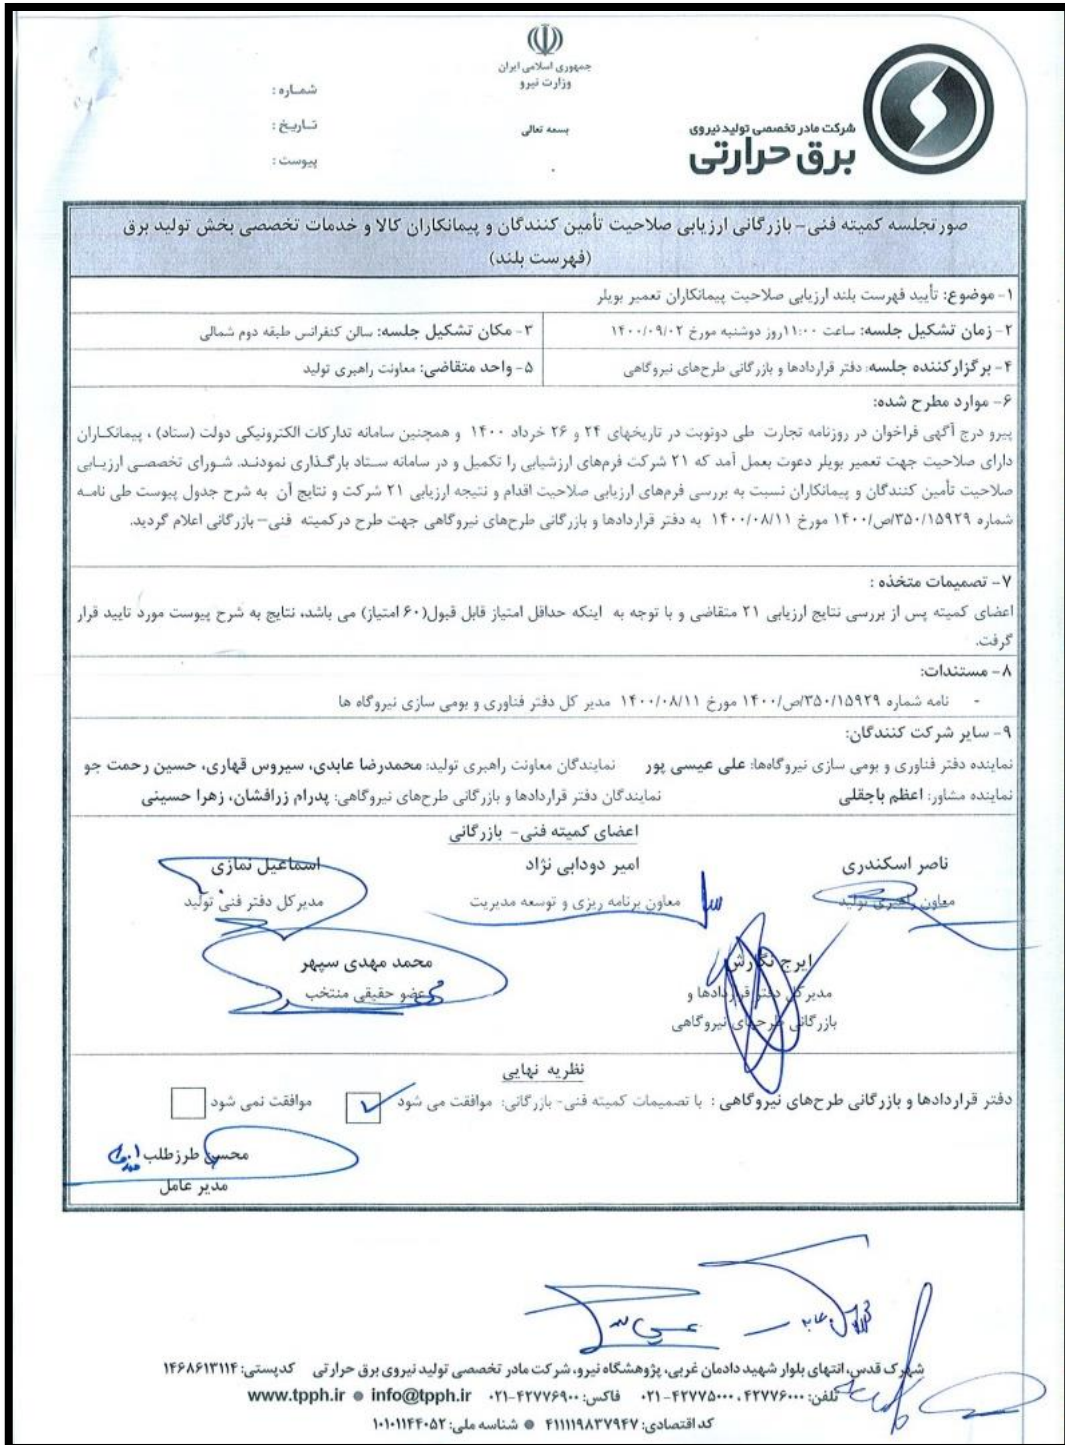 جمهوری اسلامی ایران
وزارت نیرو
بسمه تعالی
شماره :
تاریخ :
پیوست :
شرکت مادر تخصصی تولید نیروی
برق حرارتی
صورتجلسه کمیته فنی- بازرگانی ارزیابی صلاحیت تأمین کنندگان و پیمانکاران کالا و خدمات تخصصی بخش تولید برق
(فهرست بلند)
۱- موضوع: تأیید فهرست بلند ارزیابی صلاحیت پیمانکاران تعمیر بویلر
۲- زمان تشکیل جلسه: ساعت ۱۱:۰۰ روز دوشنبه مورخ ۱۴۰۰/۰۹/۰۲
۳- مکان تشکیل جلسه: سالن کنفرانس طبقه دوم شمالی
۴- برگزارکننده جلسه: دفتر قراردادها و بازرگانی طرح‌های نیروگاهی
۵- واحد متقاضی: معاونت راهبری تولید
۶- موارد مطرح شده:
پیرو درج آگهی فراخوان در روزنامه تجارت طی دونوبت در تاریخهای ۲۴ و ۲۶ خرداد ۱۴۰۰ و همچنین سامانه تدارکات الکترونیکی دولت (ستاد) ، پیمانکاران
دارای صلاحیت جهت تعمیر بویلر دعوت بعمل آمد که ۲۱ شرکت فرم‌های ارزشیابی را تکمیل و در سامانه ستاد بارگذاری نمودند. شورای تخصصی ارزیابی
صلاحیت تأمین کنندگان و پیمانکاران نسبت به بررسی فرم‌های ارزیابی صلاحیت اقدام و نتیجه ارزیابی ۲۱ شرکت و نتایج آن به شرح جدول پیوست طی نامه
شماره ۳۵۰/۱۵۹۲۹/ص/۱۴۰۰ مورخ ۱۴۰۰/۰۸/۱۱ به دفتر قراردادها و بازرگانی طرح‌های نیروگاهی جهت طرح درکمیته فنی– بازرگانی اعلام گردید.
۷- تصمیمات متخذه :
اعضای کمیته پس از بررسی نتایج ارزیابی ۲۱ متقاضی و با توجه به اینکه حداقل امتیاز قابل قبول(۶۰ امتیاز) می باشد، نتایج به شرح پیوست مورد تایید قرار
گرفت.
۸- مستندات:
- نامه شماره ۳۵۰/۱۵۹۲۹/ص/۱۴۰۰ مورخ ۱۴۰۰/۰۸/۱۱ مدیر کل دفتر فناوری و بومی سازی نیروگاه ها
۹- سایر شرکت کنندگان:
نماینده دفتر فناوری و بومی سازی نیروگاه‌ها: علی عیسی پور نمایندگان معاونت راهبری تولید: محمدرضا عابدی، سیروس قهاری، حسین رحمت جو
نماینده مشاور: اعظم باجقلی نمایندگان دفتر قراردادها و بازرگانی طرح‌های نیروگاهی: پدرام زرافشان، زهرا حسینی
اعضای کمیته فنی- بازرگانی
ناصر اسکندری امیر دودابی نژاد اسماعیل نمازی
معاون راهبری تولید معاون برنامه ریزی و توسعه مدیریت مدیرکل دفتر فنی تولید
ایرج نگارش محمد مهدی سپهر
مدیرکل دفتر قراردادها و عضو حقیقی منتخب
بازرگانی طرح‌های نیروگاهی
نظریه نهایی
دفتر قراردادها و بازرگانی طرح‌های نیروگاهی : با تصمیمات کمیته فنی- بازرگانی: موافقت می شود موافقت نمی شود
محسن طرزطلب
مدیر عامل
شهرک قدس، انتهای بلوار شهید دادمان غربی، پژوهشگاه نیرو، شرکت مادر تخصصی تولید نیروی برق حرارتی کدپستی: ۱۴۶۸۶۱۳۱۱۴
تلفن: ۴۲۷۷۶۰۰۰ ، ۴۲۷۷۵۰۰۰-۰۲۱ فاکس: ۴۲۷۷۶۹۰۰-۰۲۱ info@tpph.ir www.tpph.ir
کد اقتصادی: ۴۱۱۱۱۹۸۳۷۹۴۷ شناسه ملی: ۱۰۱۰۱۱۴۴۰۵۲